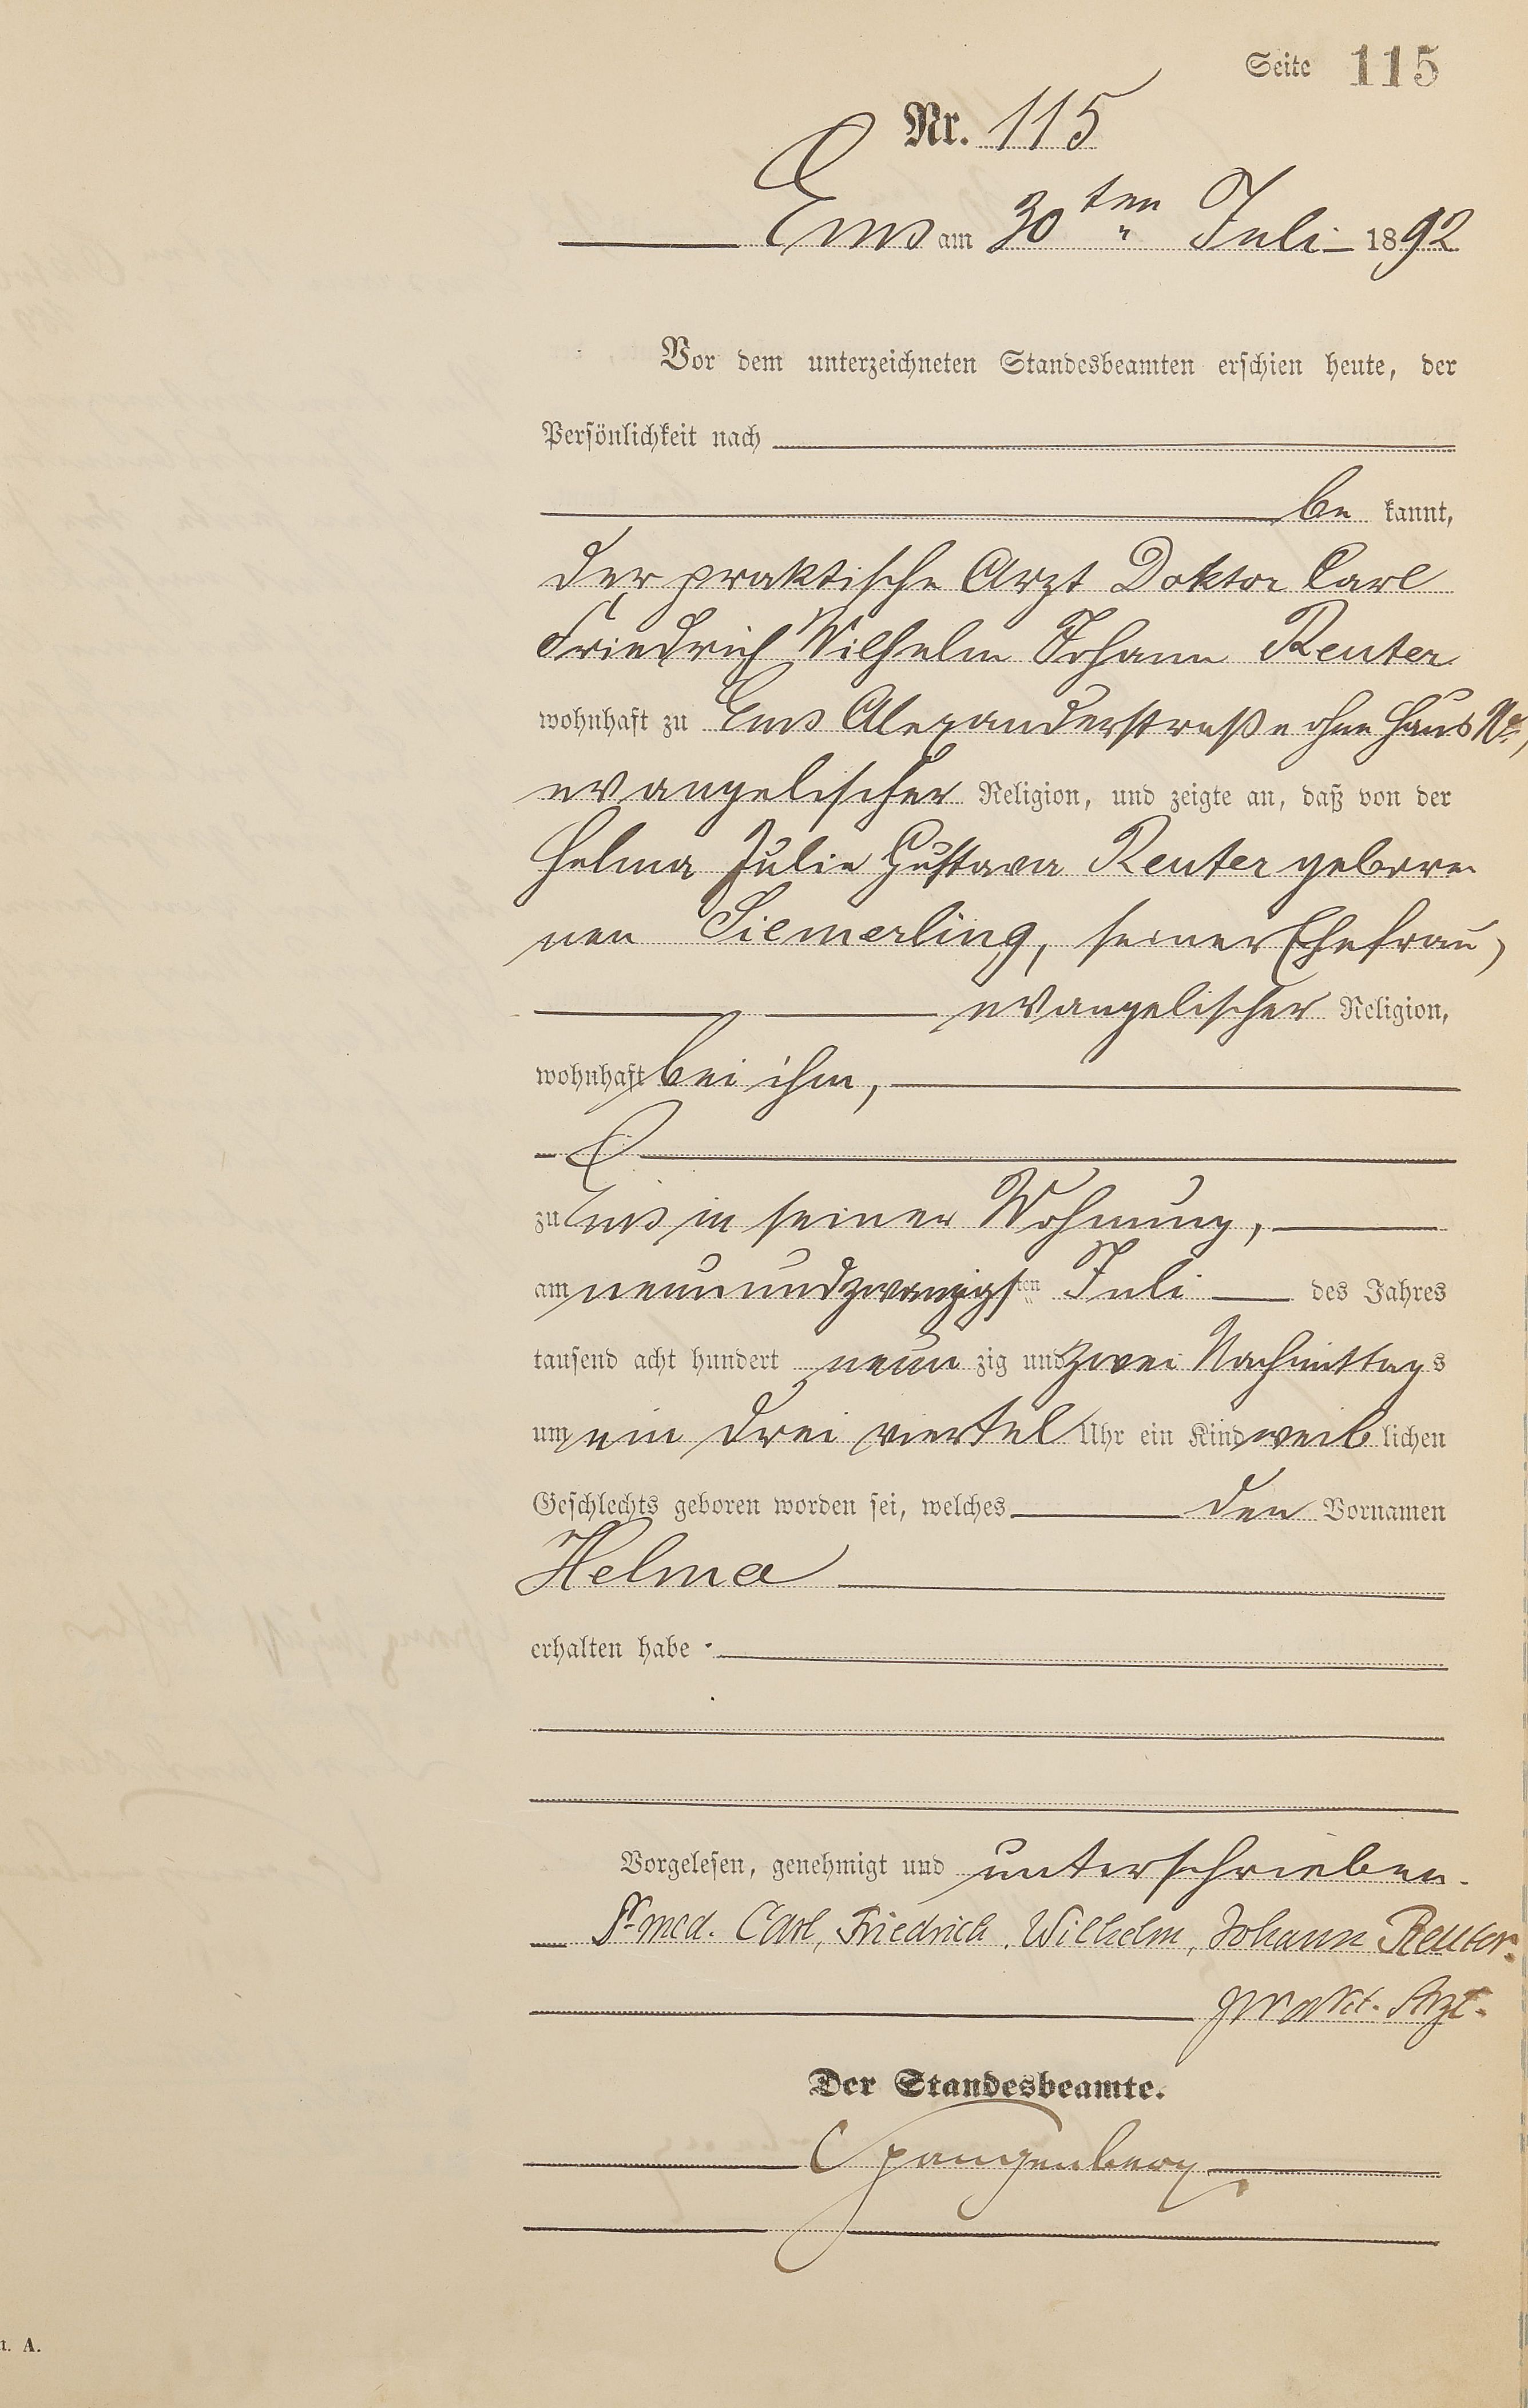 Seite 115
Nr. 115
Ems am 30ten Juli 1892
Vor dem unterzeichneten Standesbeamten erschien heute, der
Persönlichkeit nach
be kannt,
der praktische Arzt Doktor Carl
Friedrich Wilhelm Johann Reuter
wohnhaft zu Ems Alexanderstraße ohne Haus No,
evangelischer Religion, und zeigte an, daß von der
Helma Julie Gustava Reuter gebore
nen Siemerling, seiner Ehefrau,
evangelischer Religion,
wohnhaft bei ihm,
zu Ems in seiner Wohnung,
am neunundzwanzigsten Juli des Jahres
tausend acht hundert neun zig und zwei Nachmittags
um ein drei viertel Uhr ein Kind weiblichen
Geschlechts geboren worden sei, welches den Vornamen
Helma
erhalten habe.
Vorgelesen, genehmigt und unterschrieben.
Dr med. Carl, Friedrich, Wilhelm, Johann Reuter.
prakt. Arzt.
Der Standesbeamte.
Spangenberg
A.